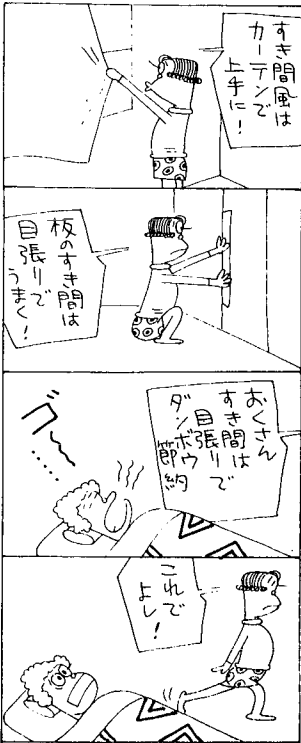 すき間風は
カーテンで
上手に！
板のすき間は
目張りで
うまく！
おくさん
すき間は
目張りで
ダンボウ
節約
グ〜〜
……
これで
よし！